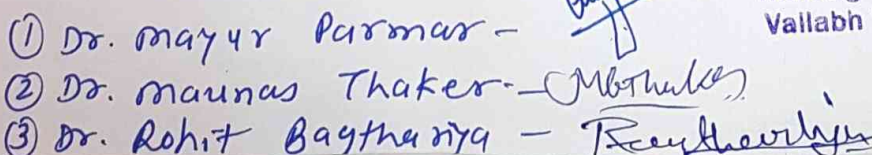 ① Dr. Mayur Parmar -
Vallabh
② Dr. Maunas Thaker -
③ Dr. Rohit Bagthariya -